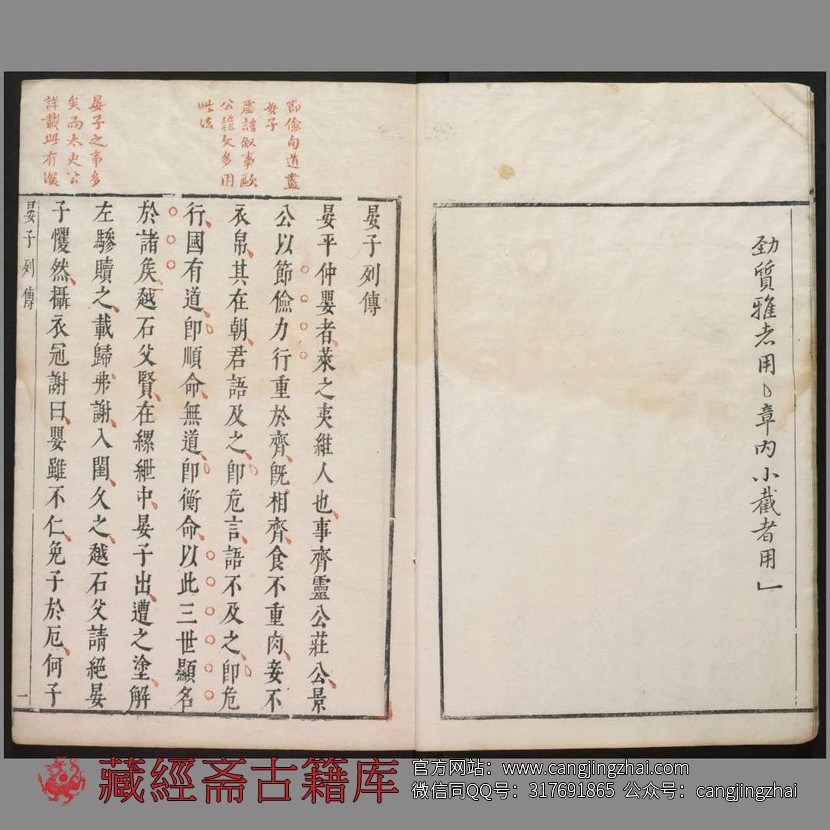 勁質雅者用﹆章內小截者用﹂
節儉句道盡
晏子
虛諸敘事歐
公誌文多用
此法
晏子之事多
矣而太史公
詳載與有深
晏子列傳
晏平仲嬰者萊之夷維人也事齊靈公莊公景
公以節儉力行重於齊旣相齊食不重肉妾不
衣帛其在朝君語及之卽危言語不及之卽危
行國有道卽順命無道卽衡命以此三世顯名
於諸矦越石父賢在縲紲中晏子出遭之塗解
左驂贖之載歸弗謝入閨久之越石父請絕晏
子懼然攝衣冠謝曰嬰雖不仁免子於厄何子
晏子列傳
一
藏經斋古籍库
官方网站：www.cangjingzhai.com
微信同QQ号：317691865 公众号：cangjingzhai